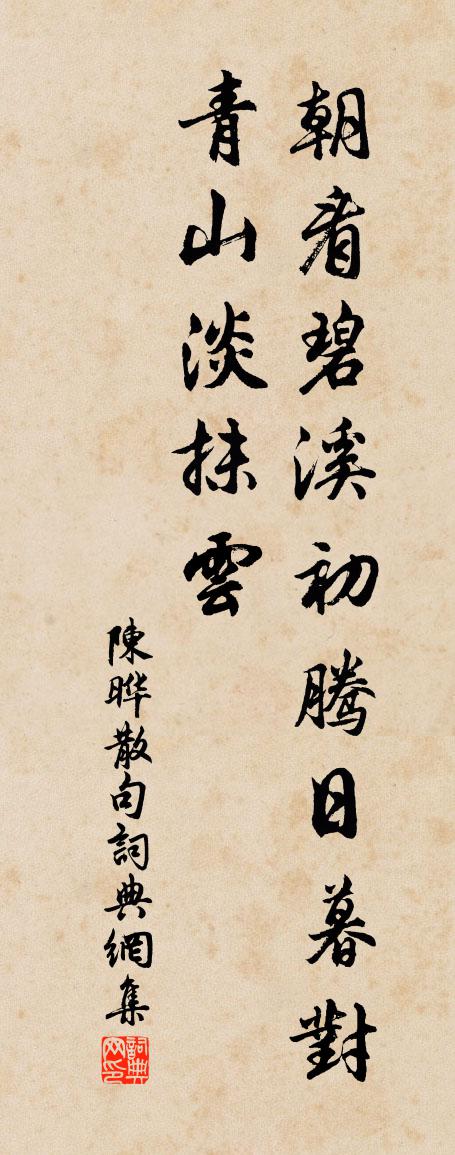 朝看碧溪初腾日暮對
青山淡抹雲
陳晔散句詞典網集
詞典网印